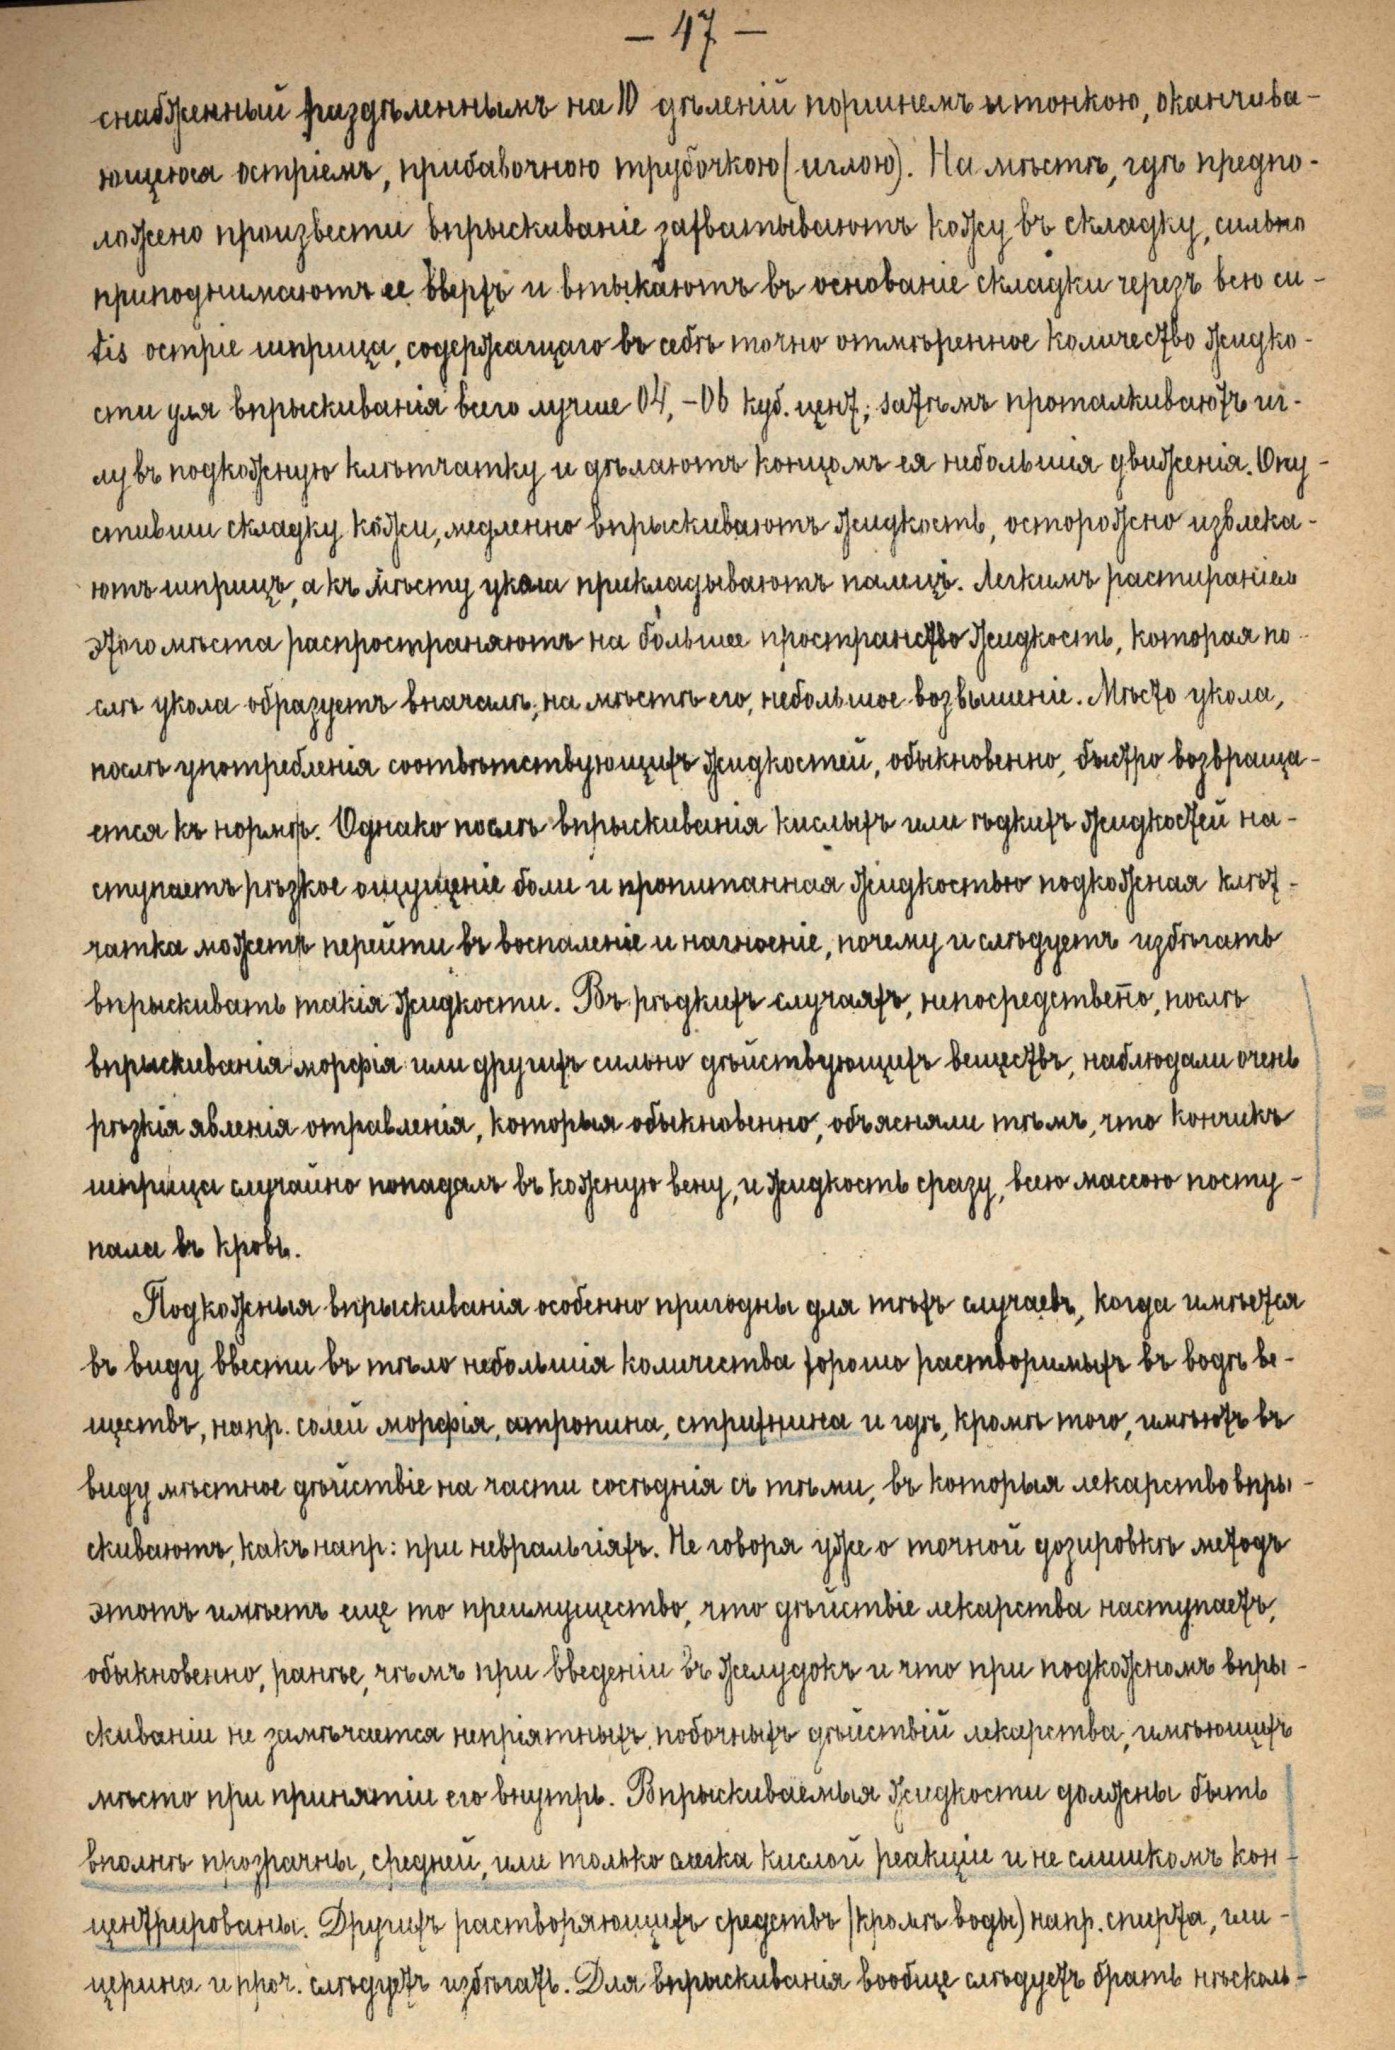 — 47 —
снабженный раздѣленнымъ на 10 дѣленій поршнемъ и тонкою, оканчива-
ющеюся остріемъ, прибавочною трубочкою (иглою). На мѣстѣ, гдѣ предпо-
ложено произвести впрыскиваніе захватываютъ кожу въ складку, сильно
приподнимаютъ ее вверхъ и втыкаютъ въ основаніе складки черезъ всю cu-
tis остріе шприца, содержащаго въ себѣ точно отмѣренное количество жидко-
сти для впрыскиванія всего лучше 04,-06 куб. цент; затѣмъ проталкиваютъ иг-
лу въ подкожную клѣтчатку и дѣлаютъ концомъ ея небольшія движенія. Опу-
стивши складку кожи, медленно впрыскиваютъ жидкость, осторожно извлека-
ютъ шприцъ, а къ мѣсту укола прикладываютъ палецъ. Легкимъ растираніем
этого мѣста распространяютъ на большее пространство жидкость, которая по-
слѣ укола образуетъ вначалѣ, на мѣстѣ его, небольшое возвышеніе. Мѣсто укола,
послѣ употребленія соотвѣтствующихъ жидкостей, обыкновенно, быстро возвраща-
ется къ нормѣ. Однако послѣ впрыскиванія кислыхъ или ѣдкихъ жидкостей на-
ступаетъ рѣзкое ощущеніе боли и пропитанная жидкостью подкожная клѣт-
чатка можетъ перейти въ воспаленіе и нагноеніе, почему и слѣдуетъ избѣгать
впрыскивать такія жидкости. Въ рѣдкихъ случаяхъ, непосредствен̅о, послѣ
впрыскиванія морфія или другихъ сильно дѣйствующихъ веществъ, наблюдали очень
рѣзкія явленія отравленія, которыя обыкновенно, объясняли тѣмъ, что кончикъ
шприца случайно попадалъ въ кожную вену, и жидкость сразу, всею массою посту-
пала въ кровь.
Подкожныя впрыскиванія особенно пригодны для тѣхъ случаевъ, когда имѣется
въ виду ввести въ тѣло небольшія количества хорошо растворимыхъ въ водѣ ве-
ществъ, напр. солей морфія, атропина, стрихнина и гдѣ, кромѣ того, имѣютъ въ
виду мѣстное дѣйствіе на части сосѣднія съ тѣми, въ которыя лекарство впры-
скиваютъ, какъ напр: при невралгіяхъ. Не говоря уже о точной дозировкѣ методъ
этотъ имѣетъ еще то преимущество, что дѣйствіе лекарства наступаетъ,
обыкновенно, ранѣе, чѣмъ при введеніи въ желудокъ и что при подкожномъ впры-
скиваніи не замѣчается непріятныхъ побочныхъ дѣйствій лекарства, имѣющихъ
мѣсто при принятіи его внутрь. Впрыскиваемыя жидкости должны быть
вполнѣ прозрачны, средней, или только слегка кислой реакціи и не слишкомъ кон-
центрированы. Другихъ растворяющихъ средствъ (кромѣ воды) напр. спирта, гли-
церина и проч. слѣдуетъ избѣгать. Для впрыскиванія вообще слѣдуетъ брать нѣсколь-